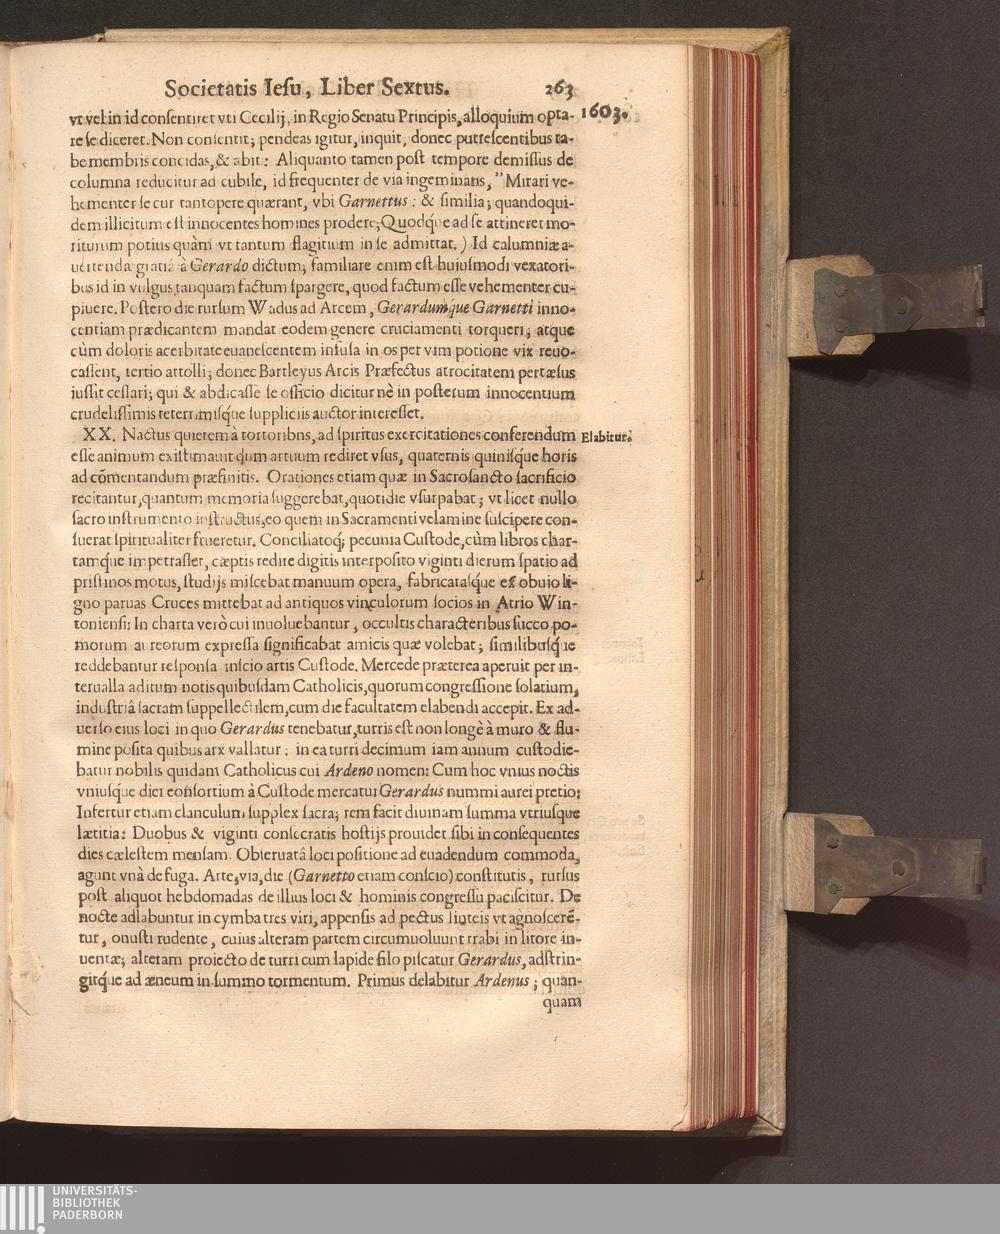 Societatis Iesu, Liber Sextus. 263
vt vel in id consentiret vti Cecilij, in Regio Senatu Principis, alloquium opta- 1603.
re se diceret. Non consentit; pendeas igitur, inquit, donec putrescentibus ta-
be membris concidas, & abit: Aliquanto tamen post tempore demissus de
columna reducitur ad cubile, id frequenter de via ingeminans, "Mirari ve-
hementer se cur tantopere quærant, vbi Garnettus: & similia; quandoqui-
dem illicitum est innocentes homines prodere; Quodq́ue ad se attineret mo-
riturum potius quàm vt tantum flagitium in se admittat.) Id calumniæ a-
uertendæ gratiâ à Gerardo dictum; familiare enim est huiusmodi vexatori-
bus id in vulgus tanquam factum spargere, quod factum esse vehementer cu-
piuere. Postero die rursum Wadus ad Arcem, Gerardumque Garnetti inno-
centiam prædicantem mandat eodem genere cruciamenti torqueri; atque
cùm doloris acerbitate euanescentem infusa in os per vim potione vix reuo-
cassent, tertio attolli; donec Bartleyus Arcis Præfectus atrocitatem pertæsus
iussit cessari; qui & abdicasse se officio dicitur nè in posterum innocentium
crudelissimis teterrimisq́ue suppliciis auctor interesset.
XX. Nactus quietem à tortoribus, ad spiritus exercitationes conferendum Elabitur.
esse animum existimauit dum artuum rediret vsus, quaternis quinisq́ue horis
ad cõmentandum præfinitis. Orationes etiam quæ in Sacrosancto sacrificio
recitantur, quantum memoria suggerebat, quotidie vsurpabat; vt licet nullo
sacro instrumento instructus, eo quem in Sacramenti velamine suscipere con-
suerat spiritualiter frueretur. Conciliatoq́; pecunia Custode, cùm libros char-
tamq́ue impetrasset, cæptis redire digitis interposito viginti dierum spatio ad
pristinos motus, studijs miscebat manuum opera, fabricatasq́ue ex obuio li-
gno paruas Cruces mittebat ad antiquos vinculorum socios in Atrio Win-
toniensi: In charta verò cui inuoluebantur, occultis characteribus succo po-
morum aureorum expressa significabat amicis quæ volebat; similibusq́ue
reddebantur responsa inscio artis Custode. Mercede præterea aperuit per in-
terualla aditum notis quibusdam Catholicis, quorum congressione solatium,
industriâ sacram suppellectilem, cum die facultatem elabendi accepit. Ex ad-
uerso eius loci in quo Gerardus tenebatur, turris est non longè à muro & flu-
mine posita quibus arx vallatur: in ea turri decimum iam annum custodie-
batur nobilis quidam Catholicus cui Ardeno nomen: Cum hoc vnius noctis
vniusq́ue diei consortium à Custode mercatur Gerardus nummi aurei pretio:
Infertur etiam clanculum supplex sacra; rem facit diuinam summa vtriusque
lætitia: Duobus & viginti consecratis hostijs prouidet sibi in consequentes
dies cælestem mensam. Obseruatâ loci positione ad euadendum commoda,
agunt vnà de fuga. Arte, via, die (Garnetto etiam conscio) constitutis, rursus
post aliquot hebdomadas de illius loci & hominis congressu paciscitur. De
nocte adlabuntur in cymba tres viri, appensis ad pectus linteis vt agnoscerē-
tur, onusti rudente, cuius alteram partem circumuoluunt trabi in litore in-
uentæ; alteram proiecto de turri cum lapide filo piscatur Gerardus, adstrin-
gitq́ue ad æneum in summo tormentum. Primus delabitur Ardenus; quan-
quam
UNIVERSITÄTS-
BIBLIOTHEK
PADERBORN